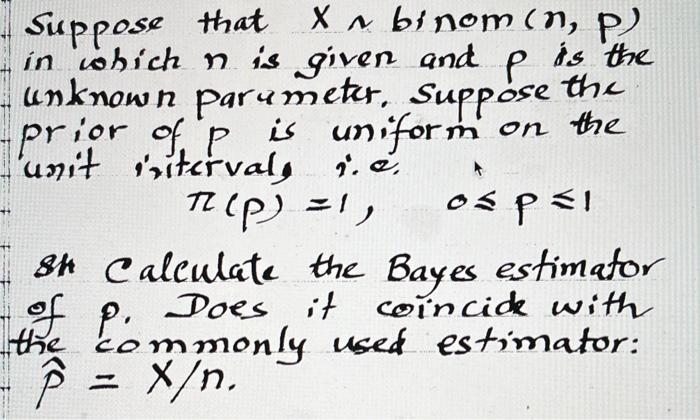 Suppose that X ~ binom(n, p)
in which n is given and p is the
unknown parameter. Suppose the
prior of p is uniform on the
unit interval, i.e.
π(p) = 1, 0 ≤ p ≤ 1
Calculate the Bayes estimator
of p. Does it coincide with
the commonly used estimator:
p̂ = X/n.